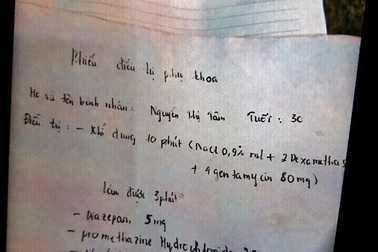 Phiếu điều trị phụ khoa
Họ và tên bệnh nhân: Nguyễn Thị Tâm Tuổi: 30
Điều trị: - Khí dung 10 phút (NaCl 0,9% ml + 2 Dexametha
+ 4 gentamycin 80mg)
Làm được 3 phút
- Diazepan 5mg
- promethazine Hydrochloride